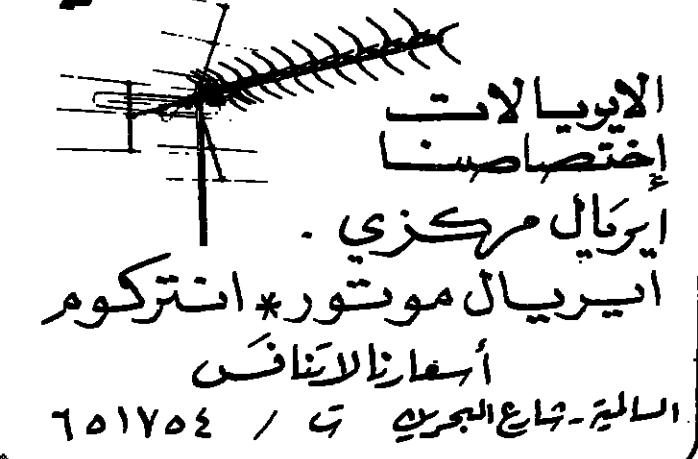 الايريالات
إختصاصنا
إيريال مركزي .
ايريال موتور * انتركوم
أسعارنا لاتنافس
السالمية - شارع البحرين ت / ٦٥١٧٥٤